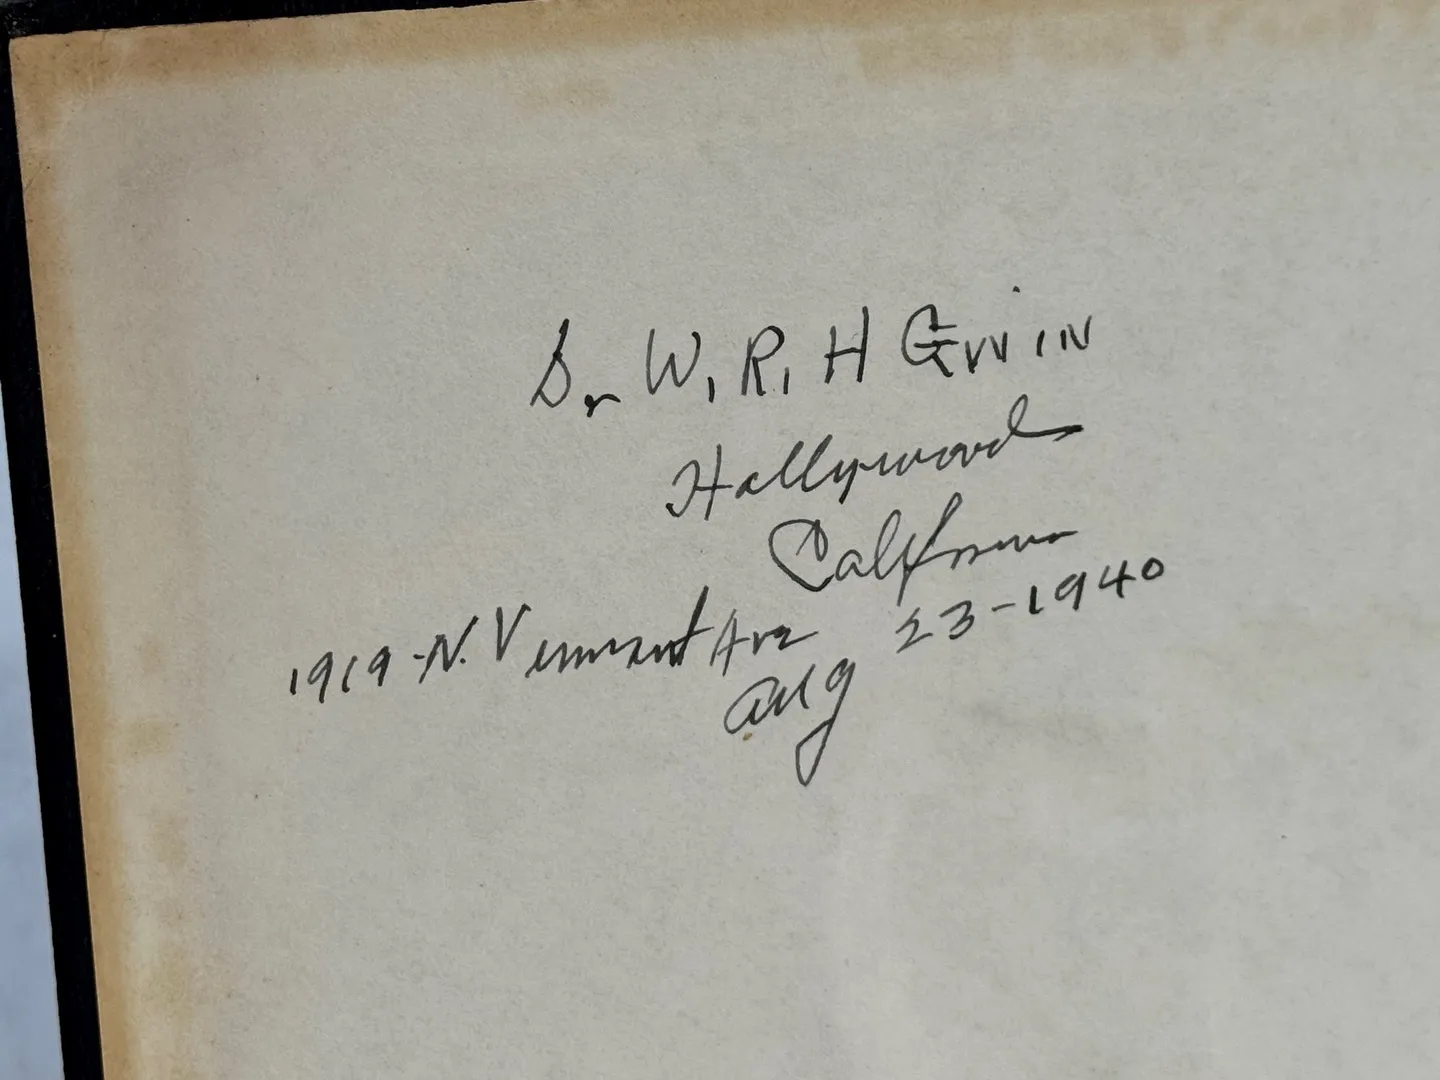 Dr W. R. H Gwin
Hollywood
California
1919-N. Vermont Ave
Aug 23-1940